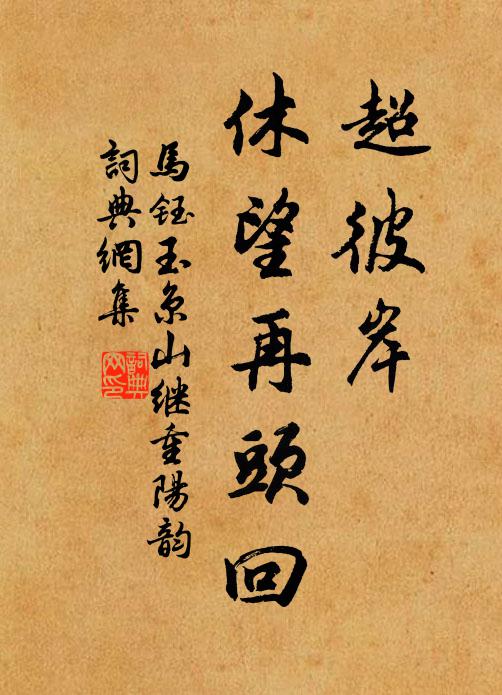 超彼岸
休望再頭回
馬鈺玉京山继重陽韵
詞典網集
詞典網印